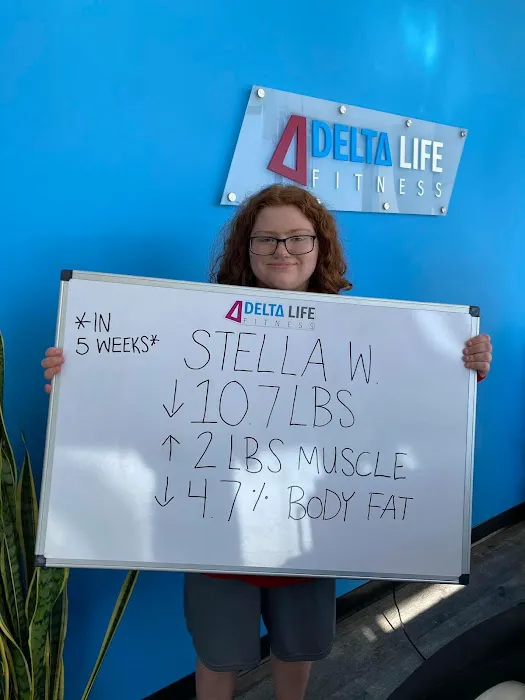 DELTA LIFE
FITNESS
DELTA LIFE
FITNESS
*IN
5 WEEKS*
STELLA W.
↓ 10.7 LBS
↑ 2 LBS MUSCLE
↓ 4.7% BODY FAT